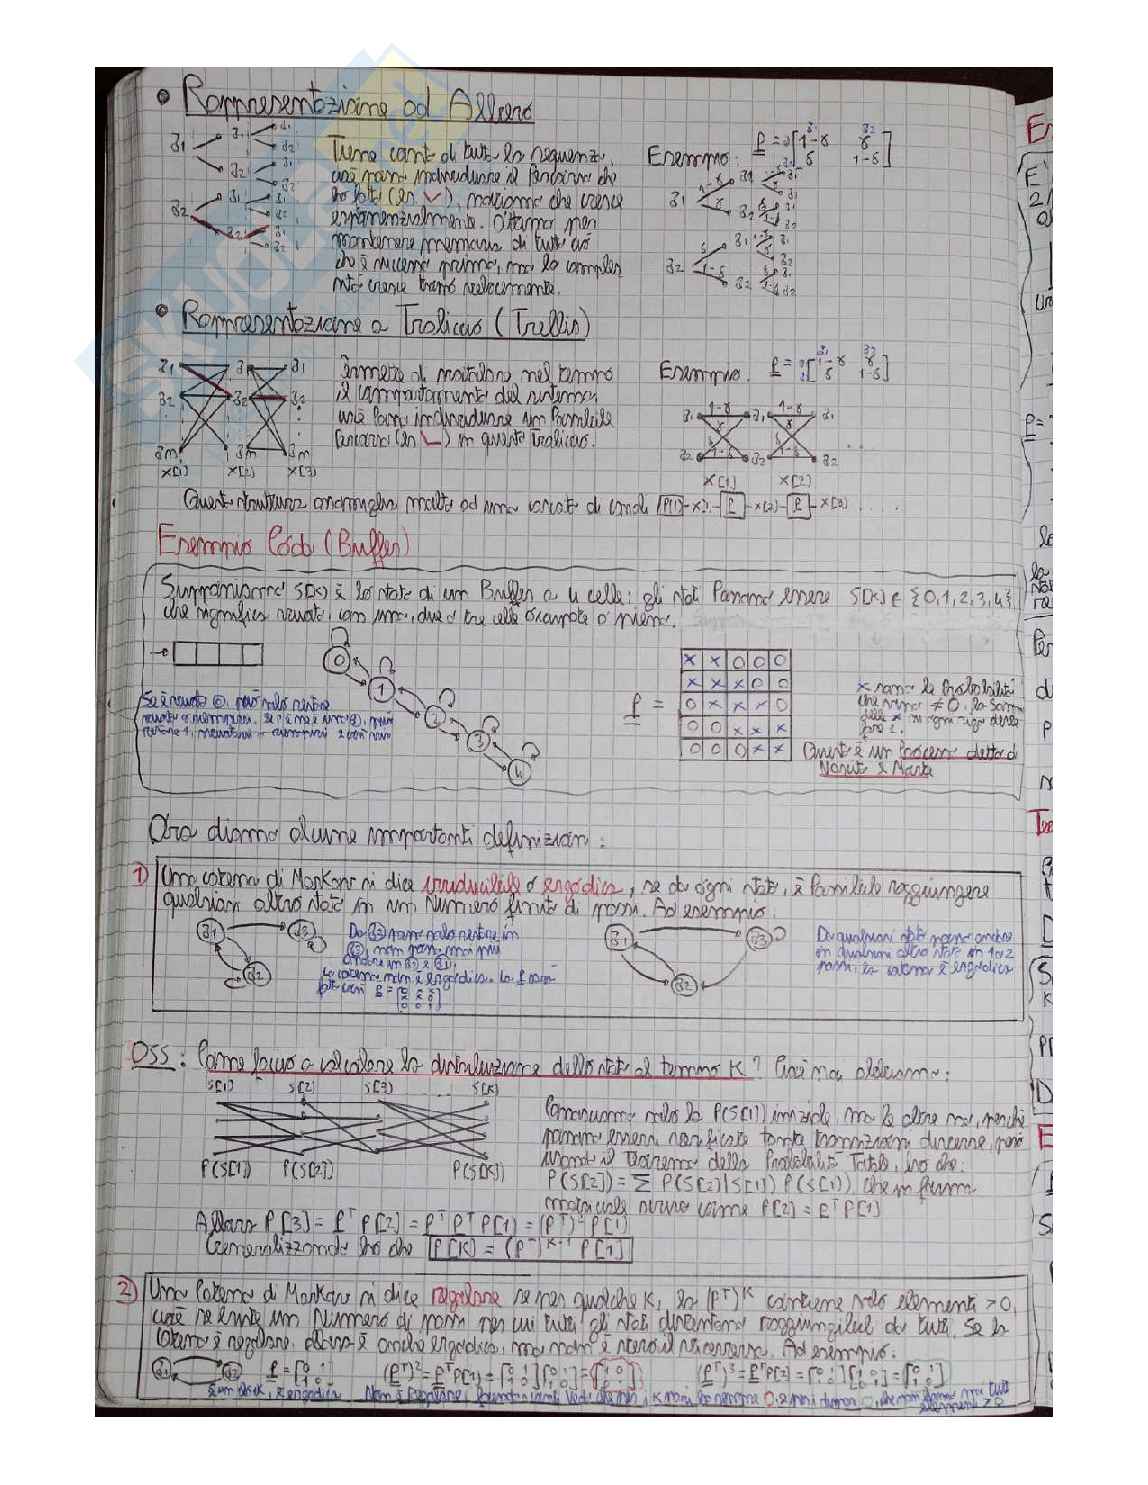 • Rappresentazione ad Albero
Tiene conto di tutte le sequenze,
cioè puoi individuare il percorso che
ho fatto (in ✓), notiamo che cresce
esponenzialmente. Otteniamo per
mantenere memoria di tutto ciò
che è successo prima, ma la comples
sità cresce troppo velocemente.
Esempio: P = [1-γ γ
δ 1-δ]
• Rappresentazione a Traliccio (Trellis)
Permette di modellare nel tempo
il comportamento del sistema,
cioè puoi individuare un possibile
percorso (in ✓) in questo traliccio.
Esempio: P = [1-γ γ
δ 1-δ]
x[1] x[2] x[3]
x[1] x[2]
Questa struttura assomiglia molto ad una cascata di canali P(1) - x[1] - P - x[2] - P - x[3] ....
Esempio Coda (Buffer)
Supponiamo S[K] è lo stato di un Buffer a 4 celle: gli stati possono essere S[K] ∈ {0,1,2,3,4}
che significa vuoto, con una, due o tre celle occupate o pieno.
0
1
2
3
4
Se è vuoto 0, può solo restare
P =
x x 0 0 0
x x x 0 0
0 x x x 0
0 0 x x x
0 0 0 x x
x sono le probabilità
che sono ≠ 0, la somma
delle x su ogni riga deve
fare 1.
Questo è un processo detto di
Nascita e Morte
Ora diamo alcune importanti definizioni:
1) Una catena di Markov si dice irriducibile o ergodica, se da ogni stato, è possibile raggiungere
qualsiasi altro stato in un numero finito di passi. Ad esempio:
Da S3 posso solo restare in
S3, non posso mai più
andare in S1 e S2.
La catena non è ergodica. La P sarà
fatta così P = [0 x x
x x 0
0 0 1]
Da qualsiasi stato posso andare
in qualsiasi altro stato in 1 o 2
passi. La catena è ergodica
OSS: Come faccio a calcolare la distribuzione dello stato al tempo K? Finora abbiamo:
S[1] S[2] S[3] ... S[K]
P(S[1]) P(S[2]) P(S[K])
Conosciamo solo la P(S[1]) iniziale ma le altre no, perché
possono essersi verificate tante transizioni diverse, però
usando il Teorema della Probabilità Totale, ho che:
P(S[2]) = Σ P(S[2]|S[1]) P(S[1]), che in forma
matriciale scrivo come P[2] = P^T P[1]
Allora P[3] = P^T P[2] = P^T P^T P[1] = (P^T)² P[1]
Generalizzando ho che P[K] = (P^T)^K-1 P[1]
2) Una Catena di Markov si dice regolare se per qualche K, la (P^T)^K contiene solo elementi > 0,
cioè se esiste un numero di passi per cui tutti gli stati diventano raggiungibili da tutti. Se la
catena è regolare, allora è anche ergodica, ma non è vero il viceversa. Ad esempio:
P = [0 1
1 0]
(P^T)² = P^T P[2] = [0 1
1 0][0 1
1 0] = [1 0
0 1]
(P^T)³ = P^T P[2] = [0 1
1 0][1 0
0 1] = [0 1
1 0]
elementi > 0